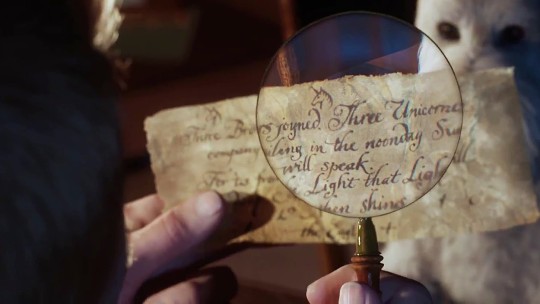 Three Bro joyned. Three Unicorns
company ling in the noonday Su
will speak.
For tis fro Light that Ligh
then shines
the